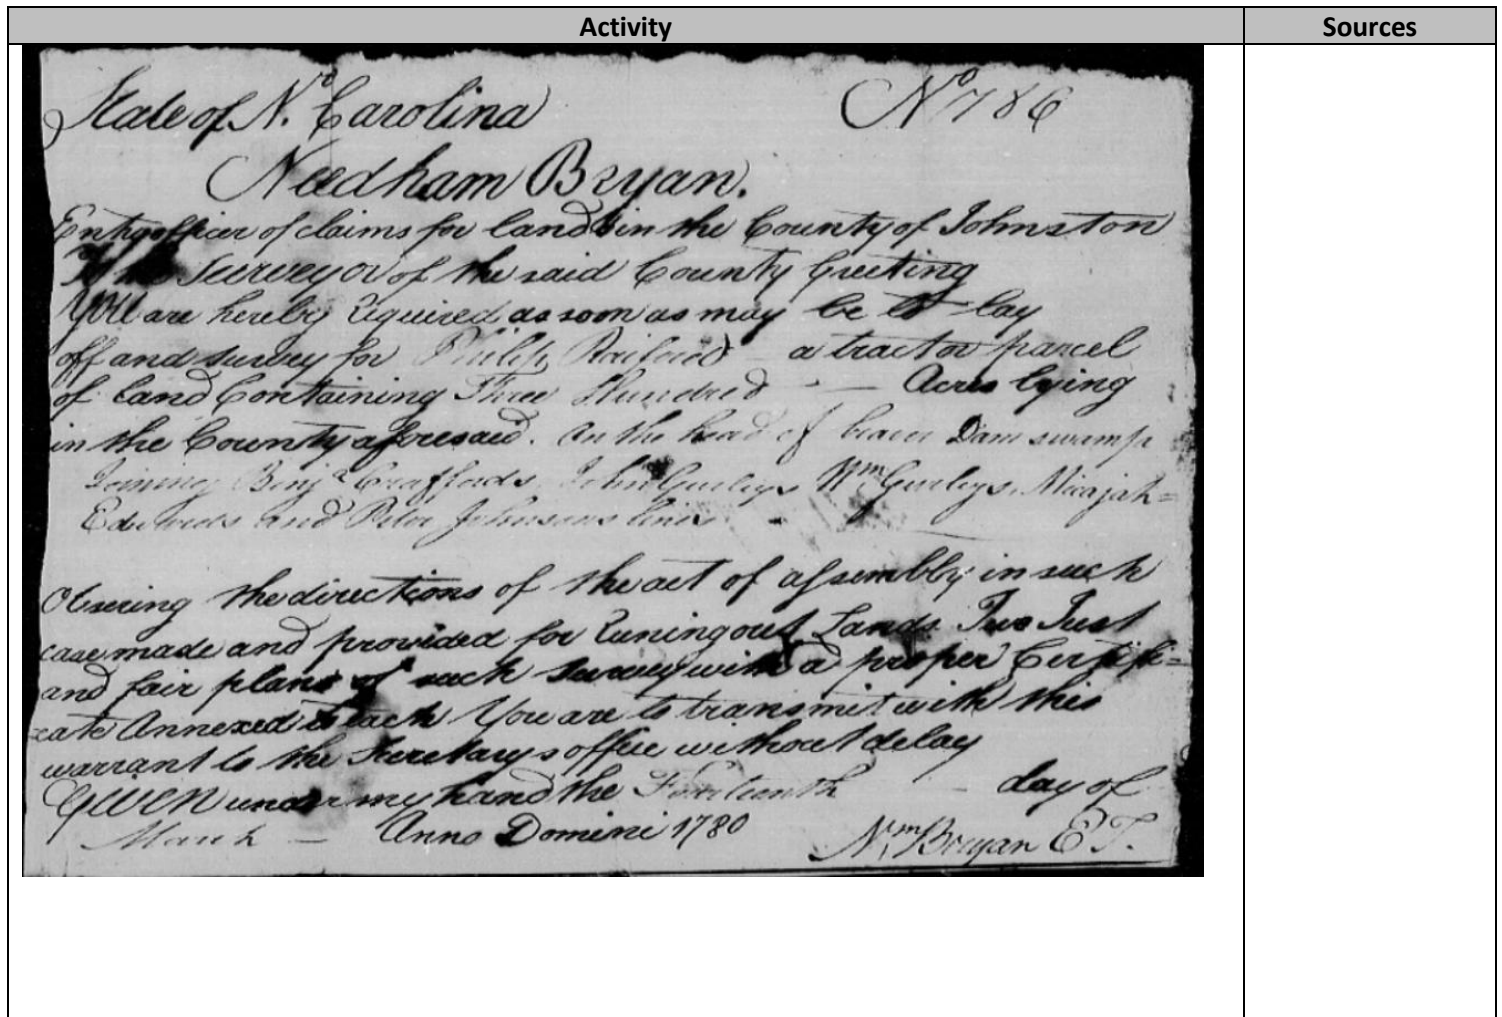 Activity
Sources
State of N.° Carolina
N° 786
Needham Bryan.
Entry officer of claims for lands in the County of Johnston
To the Surveyor of the said County Greeting
You are hereby required as soon as may be to lay
off and survey for Philip Raiford a tract or parcel
of land Containing Three Hundred Acres lying
in the County aforesaid. On the head of beaver Dam swamp
Joining Benja Craffords, John Gurleys Wm Gurleys, Micajah
Edwards and Peter Johnsons lines
Observing the directions of the act of assembly in such
case made and provided for runing out Lands. Two Just
and fair plans of such survey with a proper Certifi=
=cate Annexed to each You are to transmit with this
warrant to the Secretarys office without delay
GIVEN under my hand the day of
March Anno Domini 1780
Nm Bryan E T.